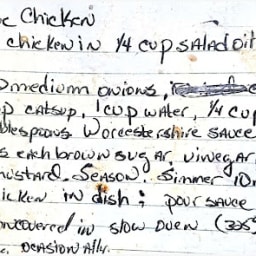 Chicken
chicken in 1/4 cup salad oil
medium onions,
catsup, 1 cup water, 1/4 cup
Worcestershire sauce
each brown sugar, vinegar
mustard. Season. Simmer 10
in dish; pour sauce
in slow oven (325
. Ocasionally.